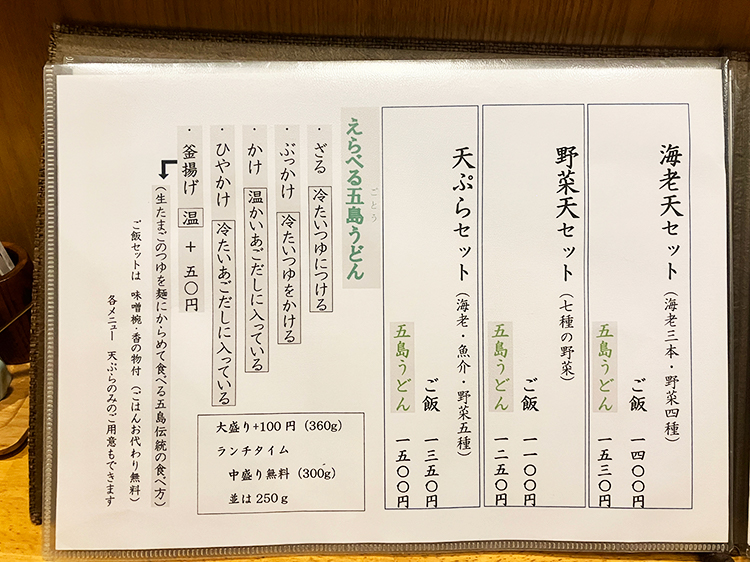 海老天セット（海老三本・野菜四種）
ご飯 一四〇〇円
五島うどん 一五三〇円
野菜天セット（七種の野菜）
ご飯 一一〇〇円
五島うどん 一二五〇円
天ぷらセット（海老・魚介・野菜五種）
ご飯 一三五〇円
五島うどん 一五〇〇円
ごとう
えらべる五島うどん
・ざる 冷たいつゆにつける
・ぶっかけ 冷たいつゆをかける
・かけ 温かいあごだしに入っている
・ひやかけ 冷たいあごだしに入っている
・釜揚げ 温 ＋ 五〇円
（生たまごのつゆを麺にからめて食べる五島伝統の食べ方）
ご飯セットは 味噌椀・香の物付（ごはんお代わり無料）
各メニュー 天ぷらのみのご用意もできます
大盛り+100円（360g）
ランチタイム
中盛り無料（300g）
並は250g